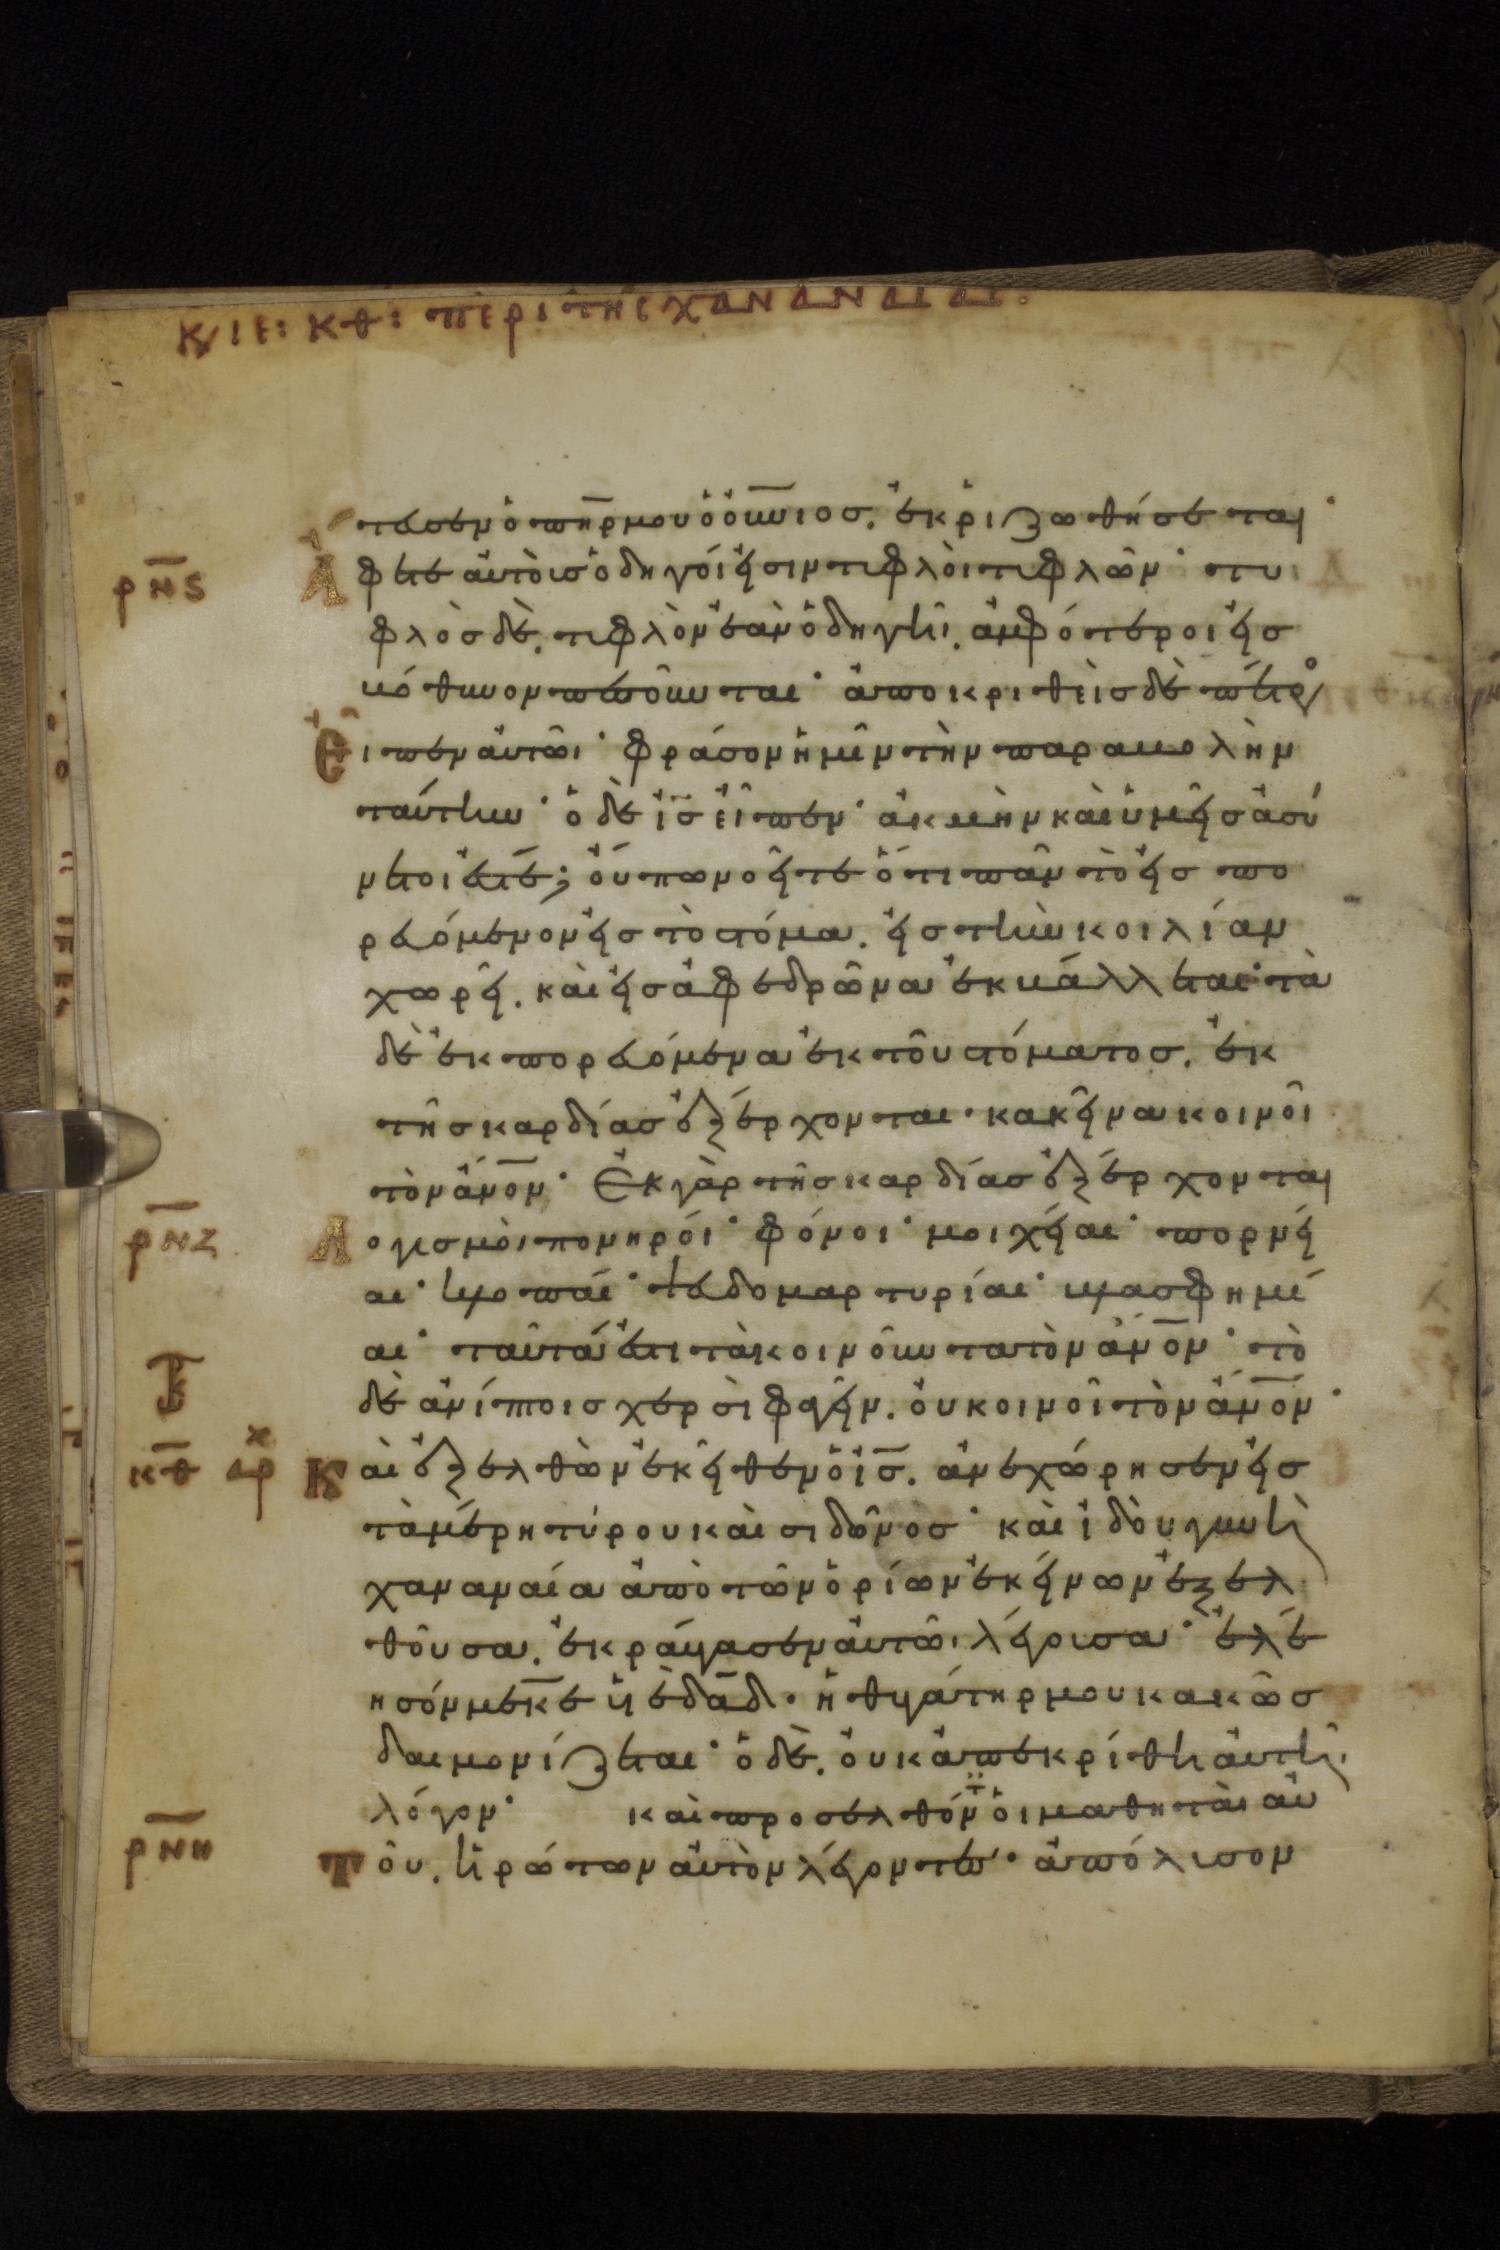 κ/ ιε: κθ: περι της χαναναιασ·
τευσεν ὁ π̅η̅ρ μου ὁ οὐ̅νιοσ. ἐκριζωθήσεται·
ρ̅ν̅ς Ἄφετε αὐτοὺσ ὁδηγοί εἰσιν τυφλοὶ τυφλῶν· τυ
φλὸσ δὲ, τυφλὸν ἐὰν ὁδηγῆι. ἀμφότεροι εἰσ
βόθυνον πεσοῦνται· ἀποκριθεὶσ δὲ πέτρο
Εἶπεν αὐτῶι· φράσον ἡμῖν τὴν παραβολὴν
ταύτην· ὁ δὲ ι̅σ εἶπεν· ἀκμὴν καὶ ὑμεῖσ ἀσύ
νετοί ἐστέ; οὔπω νοεῖτε ὅτι πᾶν τὸ εἰσπο
ρευόμενον εἰσ τὸ στόμα. εἰσ τὴν κοιλίαν
χωρεῖ. καὶ εἰσ ἀφεδρῶνα ἐκβάλλεται· τὰ
δὲ ἐκπορευόμενα ἐκ τοῦ στόματοσ. ἐκ
τῆσ καρδίασ ἐξέρχονται· κακεῖνα κοινοῖ
τὸν ἄ̅ν̅ον· Ἐκ γὰρ τῆσ καρδίασ ἐξέρχονται
ρ̅ν̅ζ Λογισμοὶ πονηροί· φόνοι· μοιχεῖαι· πορνεῖ
αι· κλοπαί· ψευδομαρτυρίαι· βλασφημί
αι· ταῦτά ἐστι τὰ κοινοῦντα τὸν ἄ̅ν̅ον· τὸ
δὲ ἀνίπτοισ χερσὶ φαγεῖν. οὐ κοινοῖ τὸν ἄ̅ν̅ον·
κ̅θ αρχ Καὶ ἐξελθὼν ἐκεῖθεν ὁ ι̅σ. ἀνεχώρησεν εἰσ
τὰ μέρη τύρου καὶ σιδῶνοσ· καὶ ἰδοὺ γυνὴ
χαναναία ἀπὸ τῶν ὁρίων ἐκείνων ἐξελ
θοῦσα. ἐκραύγασεν αὐτῶι λέγουσα· ἐλέ
ησόν με κ̅ε υἱὲ δ̅α̅δ· ἡ θυγάτηρ μου κακῶσ
δαιμονίζεται· ὁ δὲ. οὐκ ἀπεκρίθη αὐτῆι
λόγον· καὶ προσελθόντ οἱ μαθηταὶ αὐ
ρ̅ν̅η Τοῦ. ἠρώτων αὐτὸν λέγοντεσ· ἀπόλυσον